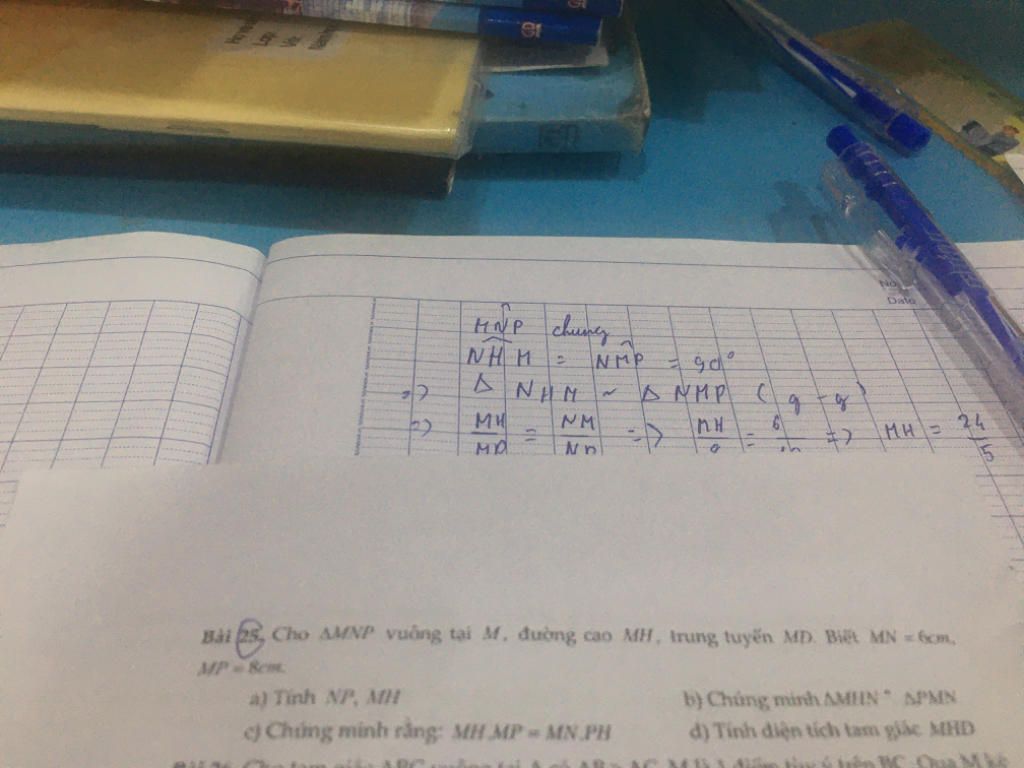 No
Date
MN̂P chung
NĤM = NM̂P = 90°
=> Δ NHM ~ Δ NMP (g - g)
=> MH/MP = NM/NP => MH/8 = 6/10 => MH = 24/5
Bài 25. Cho ΔMNP vuông tại M, đường cao MH, trung tuyến MD. Biết MN = 6cm,
MP = 8cm.
a) Tính NP, MH b) Chứng minh ΔMHN ᔕ ΔPMN
c) Chứng minh rằng: MH.MP = MN.PH d) Tính diện tích tam giác MHD